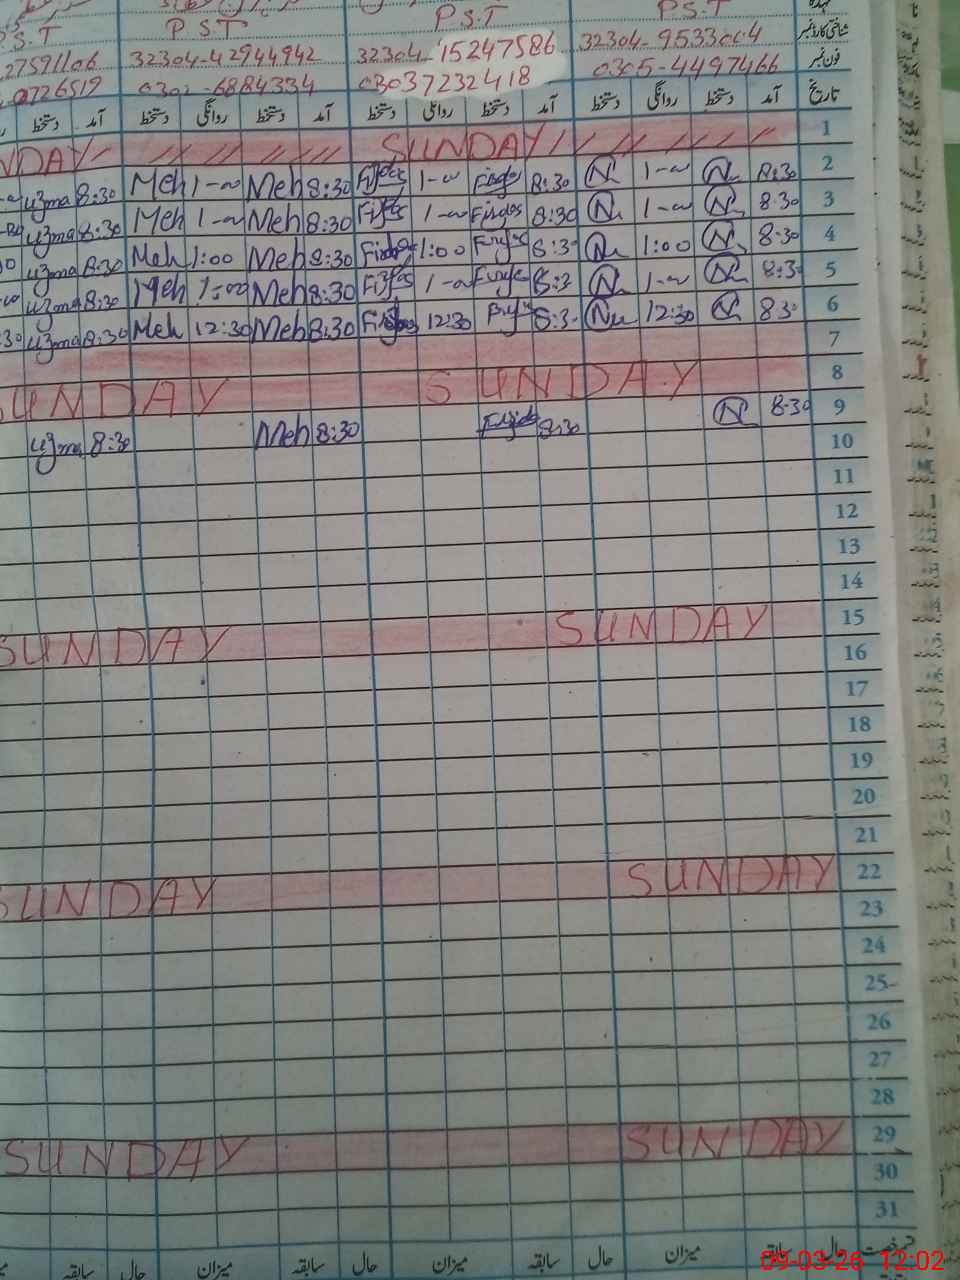 P.S.T P.S.T P.S.T P.S.T
27591106 32304-42944942 32304-15247586 32304-9533004 شناختی کارڈ نمبر
0726519 0302-6884334 03037232418 0305-4497466 فون نمبر
آمد دستخط روانگی دستخط آمد دستخط روانگی دستخط آمد دستخط روانگی دستخط آمد دستخط تاریخ
SUNDAY 1
8:30 1-00 8:30 1-00 Meh 8:30 Meh 1-00 8:30 uzma 2
8:30 1-00 8:30 Firdos 1-00 Meh 8:30 Meh 1-00 8:30 uzma 3
8:30 1:00 8:30 1:00 Meh 8:30 Meh 1:00 8:30 uzma 4
8:30 1-00 8:3 1-00 Meh 8:30 Meh 1:00 8:30 uzma 5
8:30 12:30 8:30 12:30 Meh 8:30 Meh 12:30 8:30 uzma 6
7
SUNDAY SUNDAY 8
8:30 8:30 Meh 8:30 8:30 uzma 9
10
11
12
13
14
SUNDAY SUNDAY 15
16
17
18
19
20
21
SUNDAY SUNDAY 22
23
24
25
26
27
28
SUNDAY SUNDAY 29
30
31
حال سابقہ میزان حال سابقہ میزان حال سابقہ
09-03-26 12:02